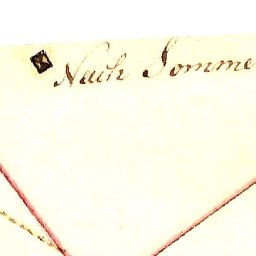 Nach Somme